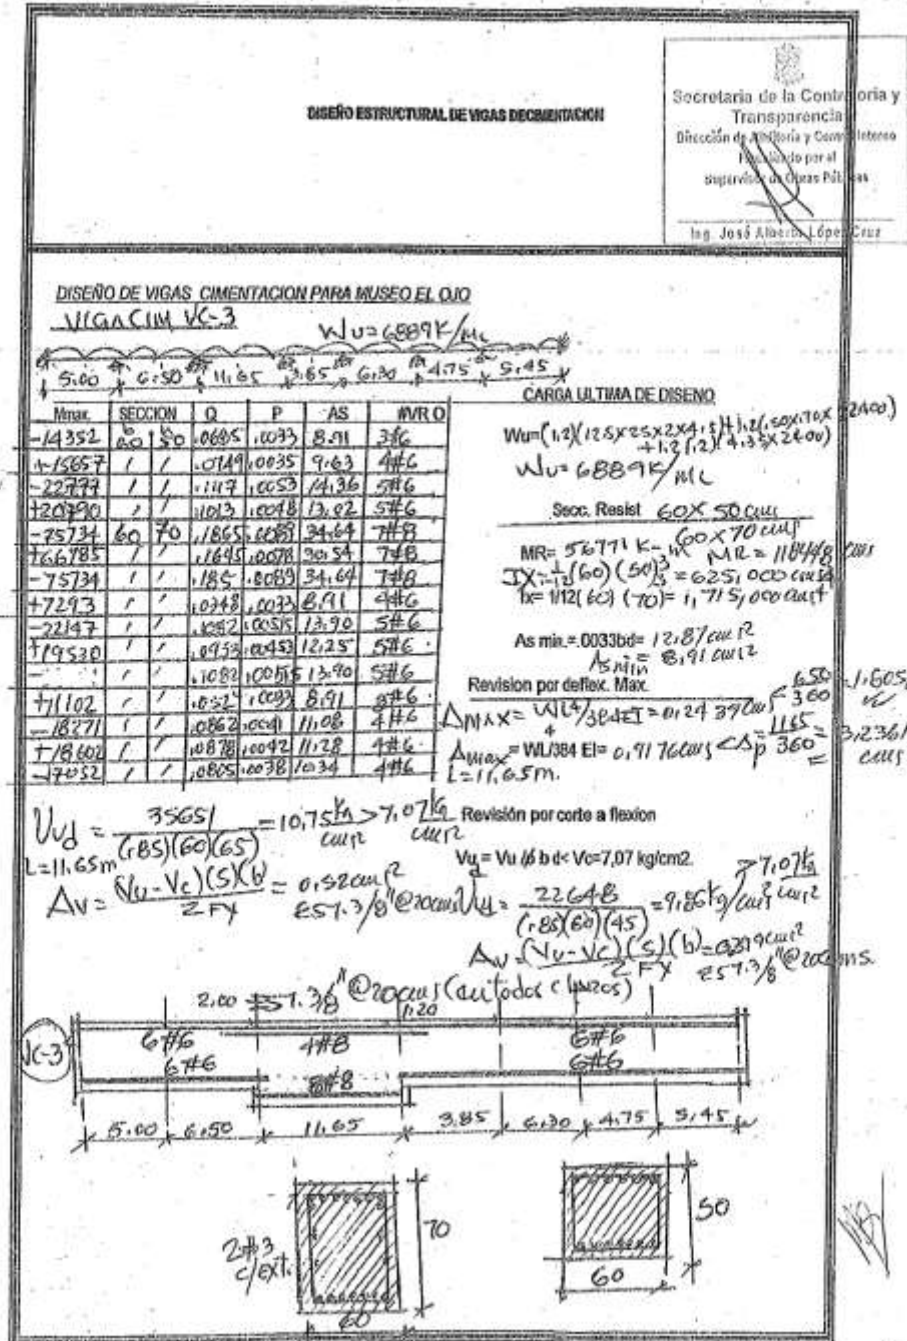 DISEÑO ESTRUCTURAL DE VIGAS DECIMENTACION
Secretaria de la Contraloria y
Transparencia
Dirección de Auditoría y Control Interno
por el
Supervisor de Obras Públicas
Ing. José Alberto López Cruz
DISEÑO DE VIGAS CIMENTACION PARA MUSEO EL OJO
VIGA CIM VC-3
Wu=6889K/ML
5.00 6.50 11.65 3.85 6.30 4.75 5.45
CARGA ULTIMA DE DISEÑO
Wu=(1.2)(125x25x2x4.5)+1.2(.50x.70x2400)
+1.2(1.2)(4.35x2400)
Wu=6889K/ML
Mmax. SECCION Q P AS #VR O
b h
-14352 60 50 .0685 .0033 8.91 3#6
+15657 / / .0749 .0035 9.63 4#6
-22777 / / .1117 .0053 14.36 5#6
+20790 / / .1013 .0048 13.02 5#6
-75734 60 70 .1865 .0089 34.64 7#8
+66785 / / .1645 .0078 30.54 7#8
-75734 / / .185 .0089 34.64 7#8
+7293 / / .0348 .0033 8.91 4#6
-22147 / / .1082 .00515 13.90 5#6
+19530 / / .0953 .00453 12.25 5#6
- / / .1082 .00515 13.90 5#6
+11102 / / .0524 .0033 8.91 3#6
-18271 / / .0862 .0041 11.08 4#6
+18602 / / .0878 .0042 11.28 4#6
-17052 / / .0805 .0038 10.34 4#6
Secc. Resist 60X50 cms
60x70 cms
MR= 56771 K-m MR= 118448
IX=1/12(60)(50)3=625,000 cms4
Ix= 1/12(60)(70)3= 1,715,000 cms4
As min.=.0033bd= 12.87 cm2
As min = 8.91 cm2
Revision por deflex. Max.
Δmax= Wl4/384EI=0.2439 cms < 650/360 = 1.805
Δmax= WL4/384 EI= 0.9176 cms < Δp 1165/360 = 3.2361 cms
L=11.65m.
Vud = 35651/(.85)(60)(65) = 10.75 kg/cm2 > 7.07 kg/cm2
L=11.65m
Av= (Vu-Vc)(S)(b)/2FY = 0.52 cm2
E57.3/8"@20cms
Revisión por corte a flexion
Vu = Vu /ø b d< Vc=7,07 kg/cm2.
Vud= 22648/(.85)(60)(45) =9.86 kg/cm2 >7.07 kg/cm2
Av=(Vu-Vc)(S)(b)/2FY
E57.3/8"@20cms.
2.00 E57.3/8"@20cms (en todos claros)
1.20
VC-3
6#6 4#8 6#6
6#6 8#8 6#6
5.00 6.50 11.65 3.85 6.30 4.75 5.45
2#3
c/ext.
70
60
50
60